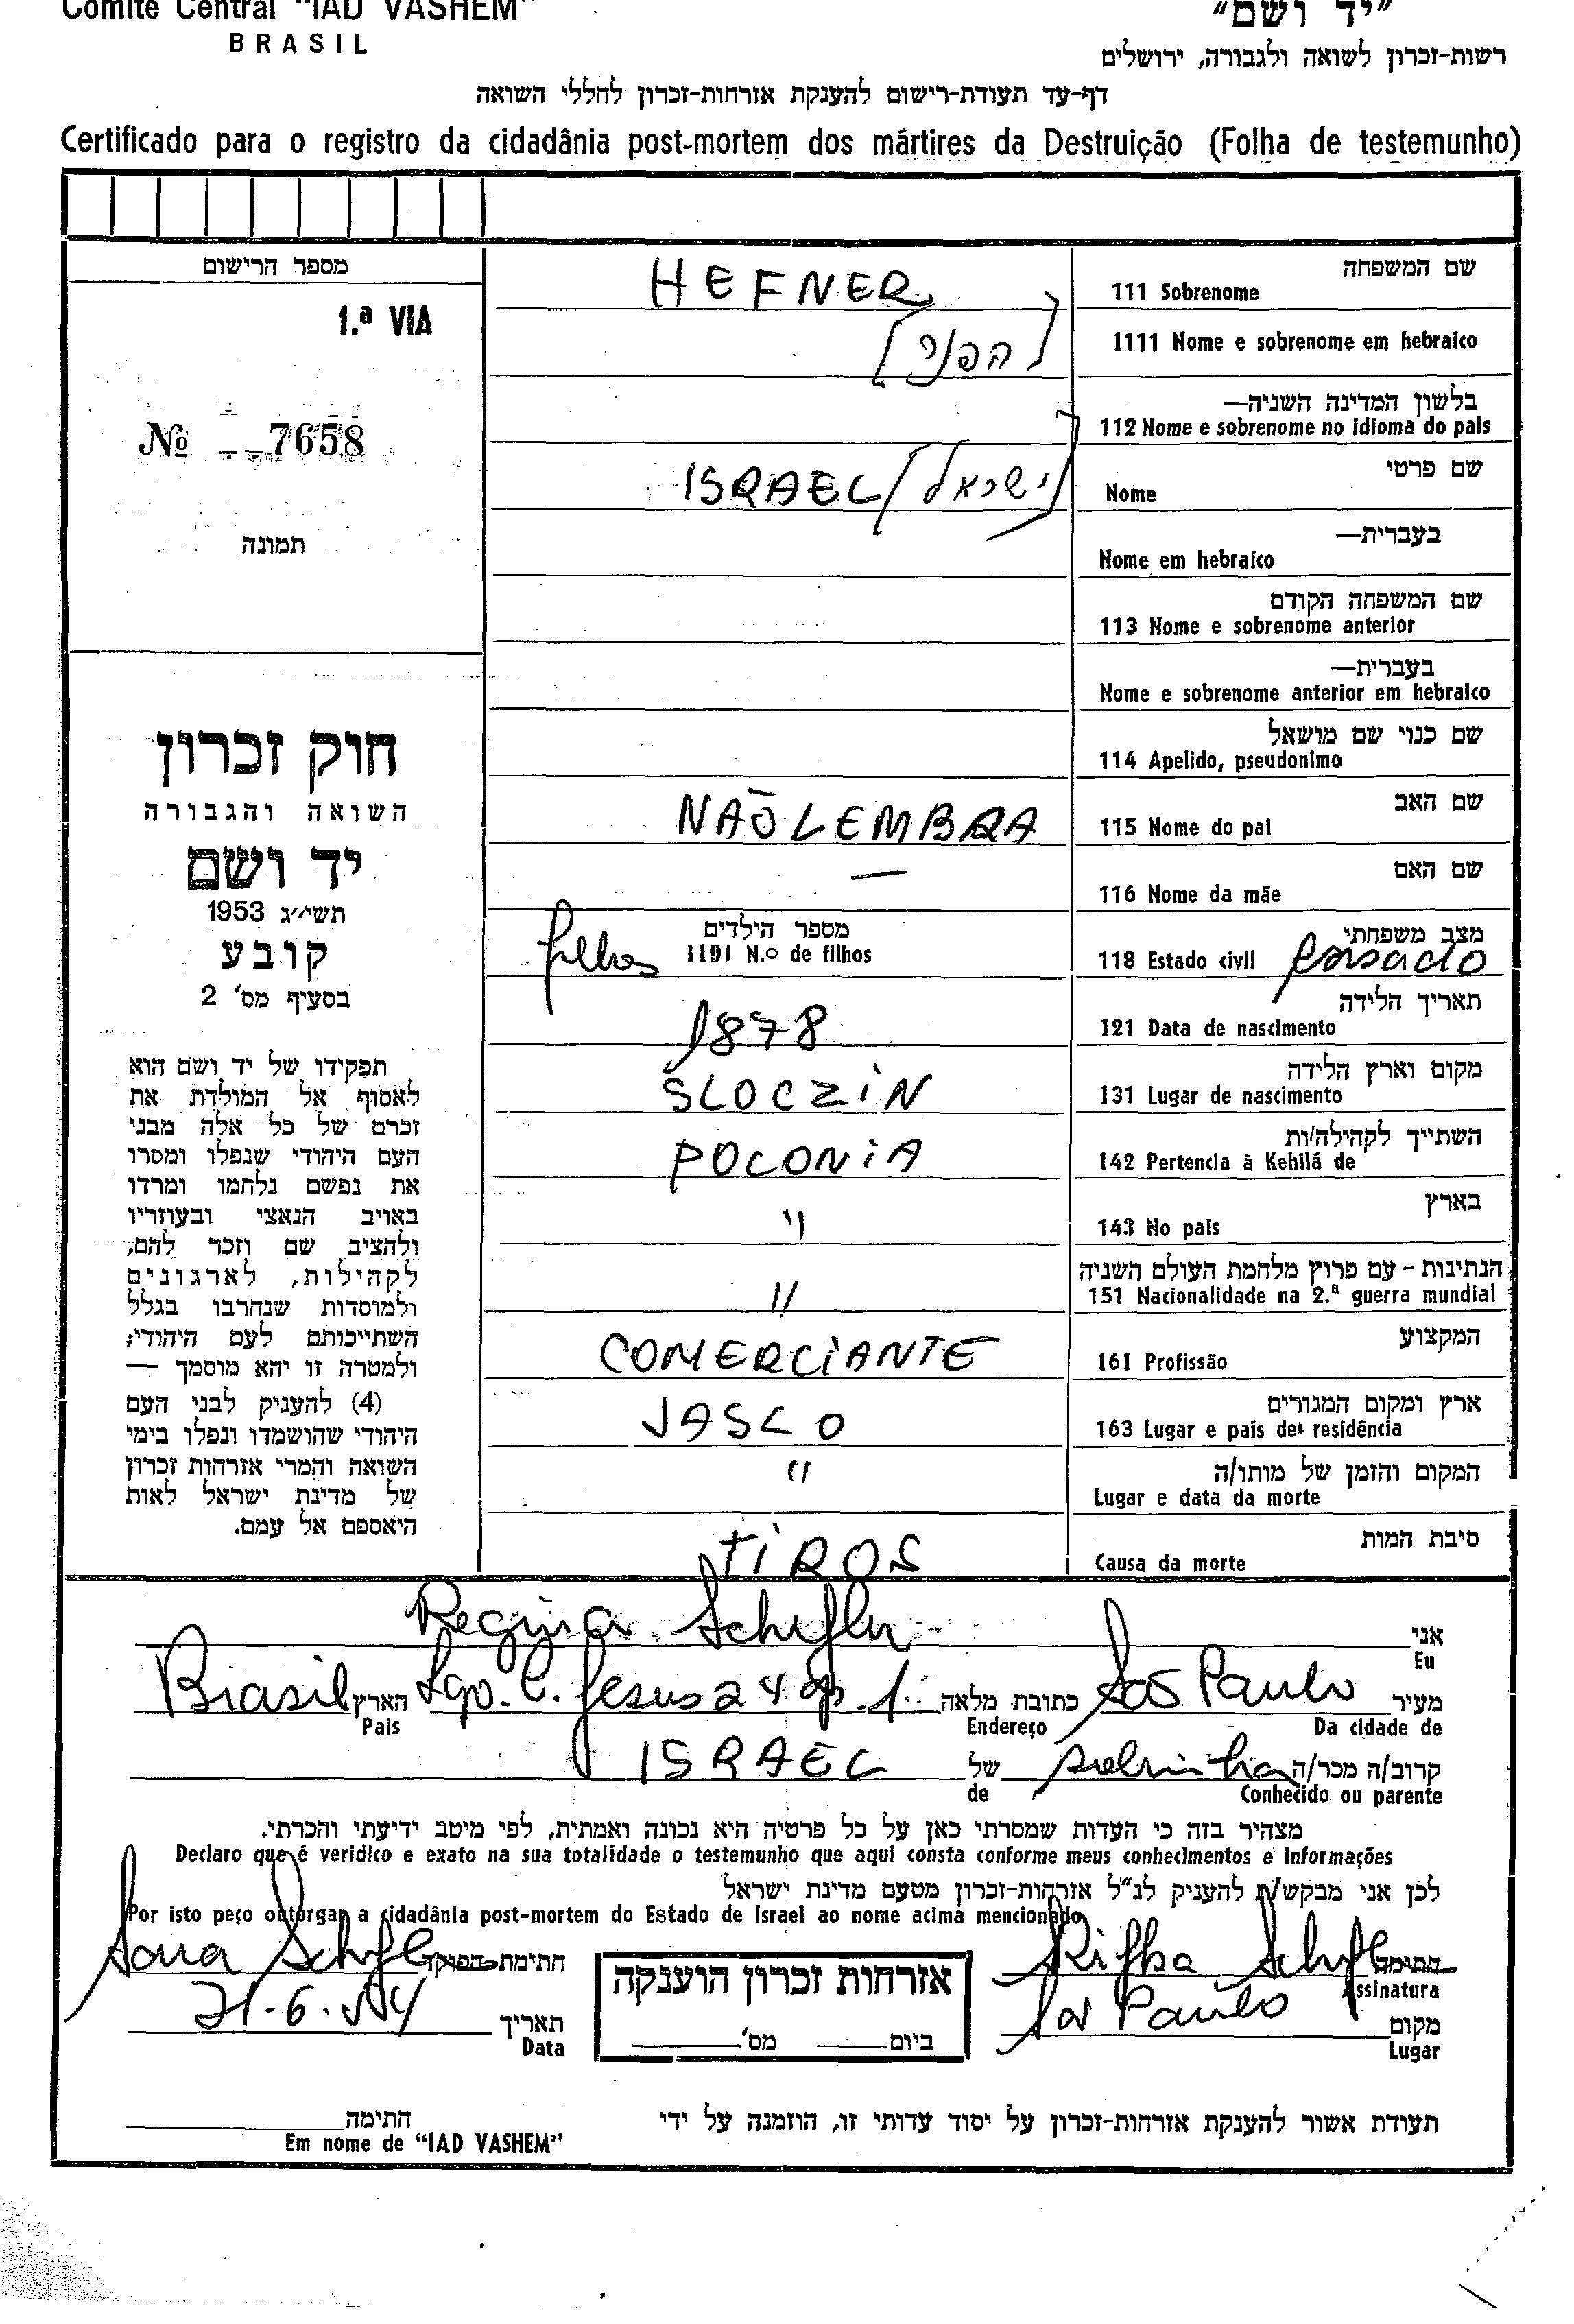 Comité Central "IAD VASHEM"
BRASIL
"יד ושם"
רשות-זכרון לשואה ולגבורה, ירושלים
דף-עד תעודת-רישום להענקת אזרחות-זכרון לחללי השואה
Certificado para o registro da cidadânia post-mortem dos mártires da Destruição (Folha de testemunho)
מספר הרישום
1.ª VIA
№ 7658
תמונה
חוק זכרון
השואה והגבורה
יד ושם
תשי״ג 1953
קובע
בסעיף מס' 2
תפקידו של יד ושם הוא
לאסוף אל המולדת את
זכרם של כל אלה מבני
העם היהודי שנפלו ומסרו
את נפשם נלחמו ומרדו
באויב הנאצי ובעוזריו
ולהציב שם וזכר להם,
לקהילות, לארגונים
ולמוסדות שנחרבו בגלל
השתייכותם לעם היהודי;
ולמטרה זו יהא מוסמך —
(4) להעניק לבני העם
היהודי שהושמדו ונפלו בימי
השואה והמרי אזרחות זכרון
של מדינת ישראל לאות
היאספם אל עמם.
שם המשפחה
111 Sobrenome HEFNER
1111 Nome e sobrenome em hebraico [הפנר]
בלשון המדינה השניה—
112 Nome e sobrenome no idioma do pais
שם פרטי
Nome ISRAEL [ישראל]
בעברית—
Nome em hebraico
שם המשפחה הקודם
113 Nome e sobrenome anterior
בעברית—
Nome e sobrenome anterior em hebraico
שם כנוי שם מושאל
114 Apelido, pseudonimo
שם האב
115 Nome do pai NÃO LEMBRA
שם האם
116 Nome da mãe —
מצב משפחתי
118 Estado civil casado
מספר הילדים
1191 N.º de filhos filhos
תאריך הלידה
121 Data de nascimento 1878
מקום וארץ הלידה
131 Lugar de nascimento SLOCZIN
השתייך לקהילה/ות
142 Pertencia à Kehilá de POLONIA
בארץ
143 No pais "
הנתינות - עם פרוץ מלחמת העולם השניה
151 Nacionalidade na 2.ª guerra mundial "
המקצוע
161 Profissão COMERCIANTE
ארץ ומקום המגורים
163 Lugar e pais de residência JASLO
המקום והזמן של מותו/ה
Lugar e data da morte "
סיבת המות
Causa da morte TIROS
אני
Eu Regina Schifler
מעיר São Paulo כתובת מלאה Lgo. C. Jesus 24 ap. 1 הארץ Brasil
Da cidade de Endereço Pais
קרוב/ה מכר/ה sobrinha של ISRAEL
Conhecido ou parente de
מצהיר בזה כי העדות שמסרתי כאן על כל פרטיה היא נכונה ואמתית, לפי מיטב ידיעתי והכרתי.
Declaro que é veridico e exato na sua totalidade o testemunho que aqui consta conforme meus conhecimentos e informações
לכן אני מבקש/ת להעניק לנ"ל אזרחות-זכרון מטעם מדינת ישראל
Por isto peço outorgar a cidadânia post-mortem do Estado de Israel ao nome acima mencionado
חתימה Rifka
Assinatura
חתימת הפוקד Sara
מקום São Paulo
Lugar
אזרחות זכרון הוענקה
ביום מס'
תאריך
Data
תעודת אשור להענקת אזרחות-זכרון על יסוד עדותי זו, הוזמנה על ידי
חתימה
Em nome de "IAD VASHEM"